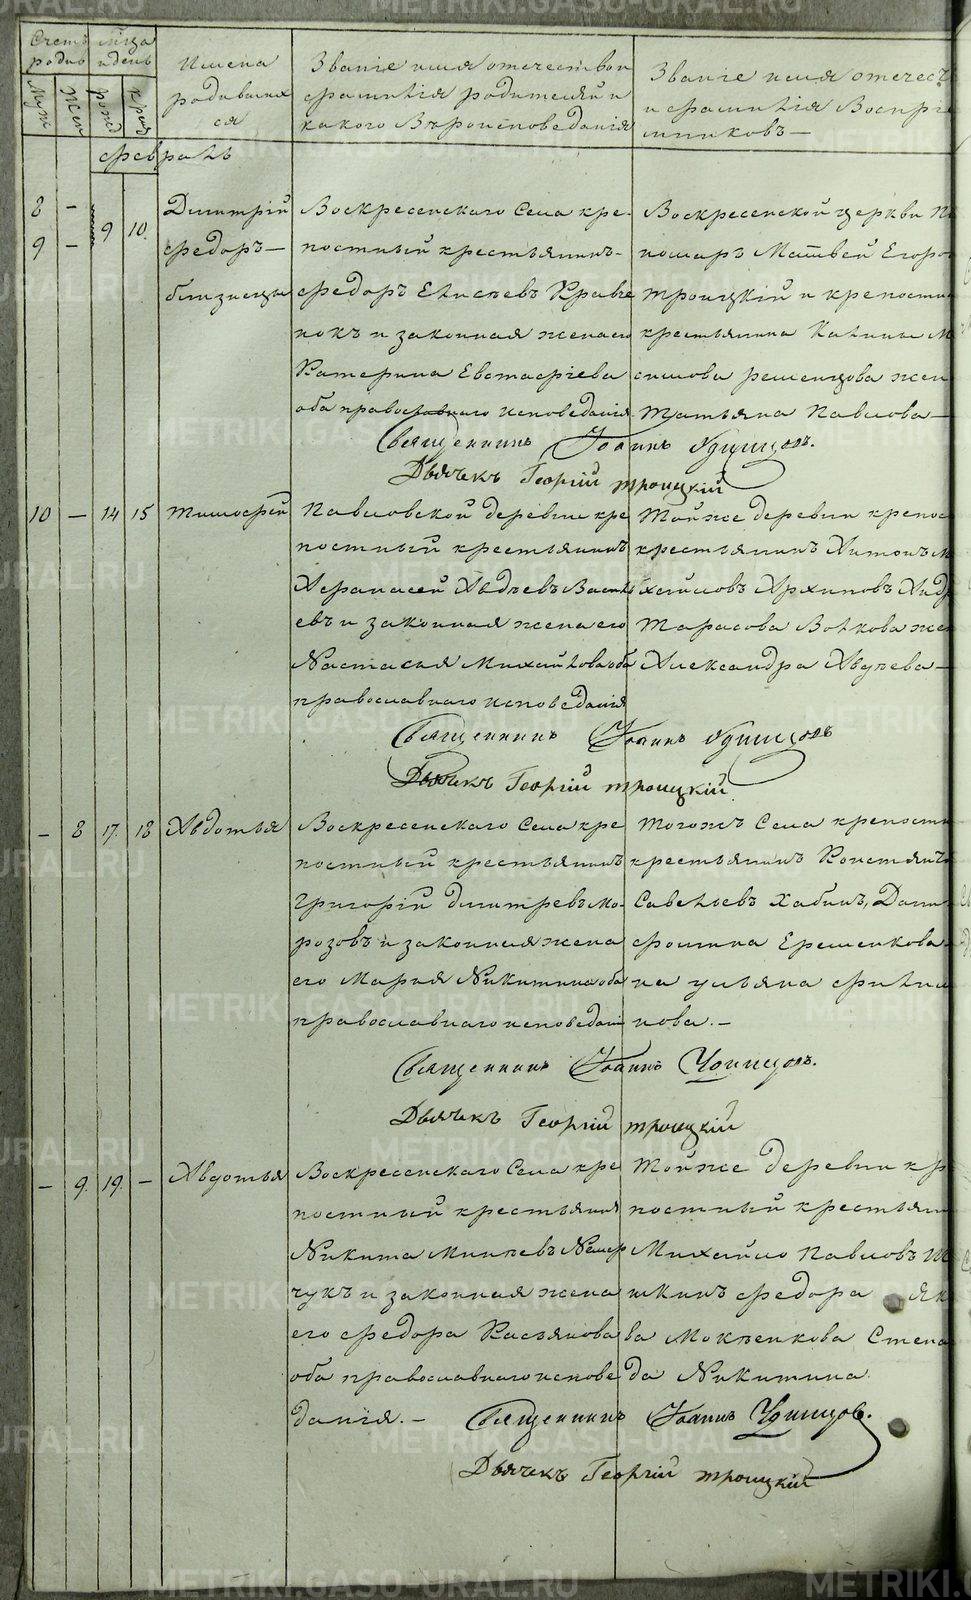 METRIKI.GASO-URAL.RU
Счетъ родив
мѣца и день
Имена родившихся
Званіе имя отечество и фамилія родителей и какого Вѣроисповеданія
Званіе имя отечес и фамилія Воспре мниковъ —
Муж
Жен
рож
кре
февраль
8 — 9 10. Дмитрій
9 — федоръ —
близнецы
Воскресенскаго Села кре-
постный крестьянинъ-
федоръ Елисѣевъ Кравче
нокъ и законная жена его
Катерина Евстафіева
оба православнаго исповеданія
Воскресенской церкви По
номарь Матвей Егоро
Троицкій и крепостн
крестьянина Калины М
симова жен
Татьяна Павлова —
Священникъ Іоаннъ
Дьячекъ Георгій Троицкій
10 — 14 15 Тимофѣй
Павловской деревни кре
постный крестьянинъ
Афанасей Авдѣевъ Василь
евъ и законная жена его
Настасья Михайлова оба
православнаго исповеданія
Тойже деревни крепос
крестьянинъ Антонъ М
хайловъ Архиповъ Андр
Тарасова Волкова же
Александра Авдѣева —
Священникъ Іоаннъ
Дьячекъ Георгій Троицкій
— 8 17. 18 Авдотья
Воскресенскаго Села кре
постный крестьянинъ
Григорій Дмитревъ Мо-
розовъ и законная жена
его Марія Никитина оба
православнаго исповедані
Тогожъ Села крепостн
крестьянинъ Констант
Савельевъ Хабинъ, Дани
Еременкова
на ульяна филип
пова. —
Священникъ Іоаннъ
Дьячекъ Георгій Троицкій
— 9. 19. — Авдотья
Воскресенскаго Села кре
постный крестьянин
Никита Минѣевъ
чукъ и законная жена
его федора Касьянова
оба православнаго испове
данія. —
Тойже деревни кр
постный крестьян
Михайло Павловъ
шкинъ федора Як
ва Мокѣенкова Степа
да Никитина
Священникъ Іоаннъ
Дьячекъ Георгій Троицкій